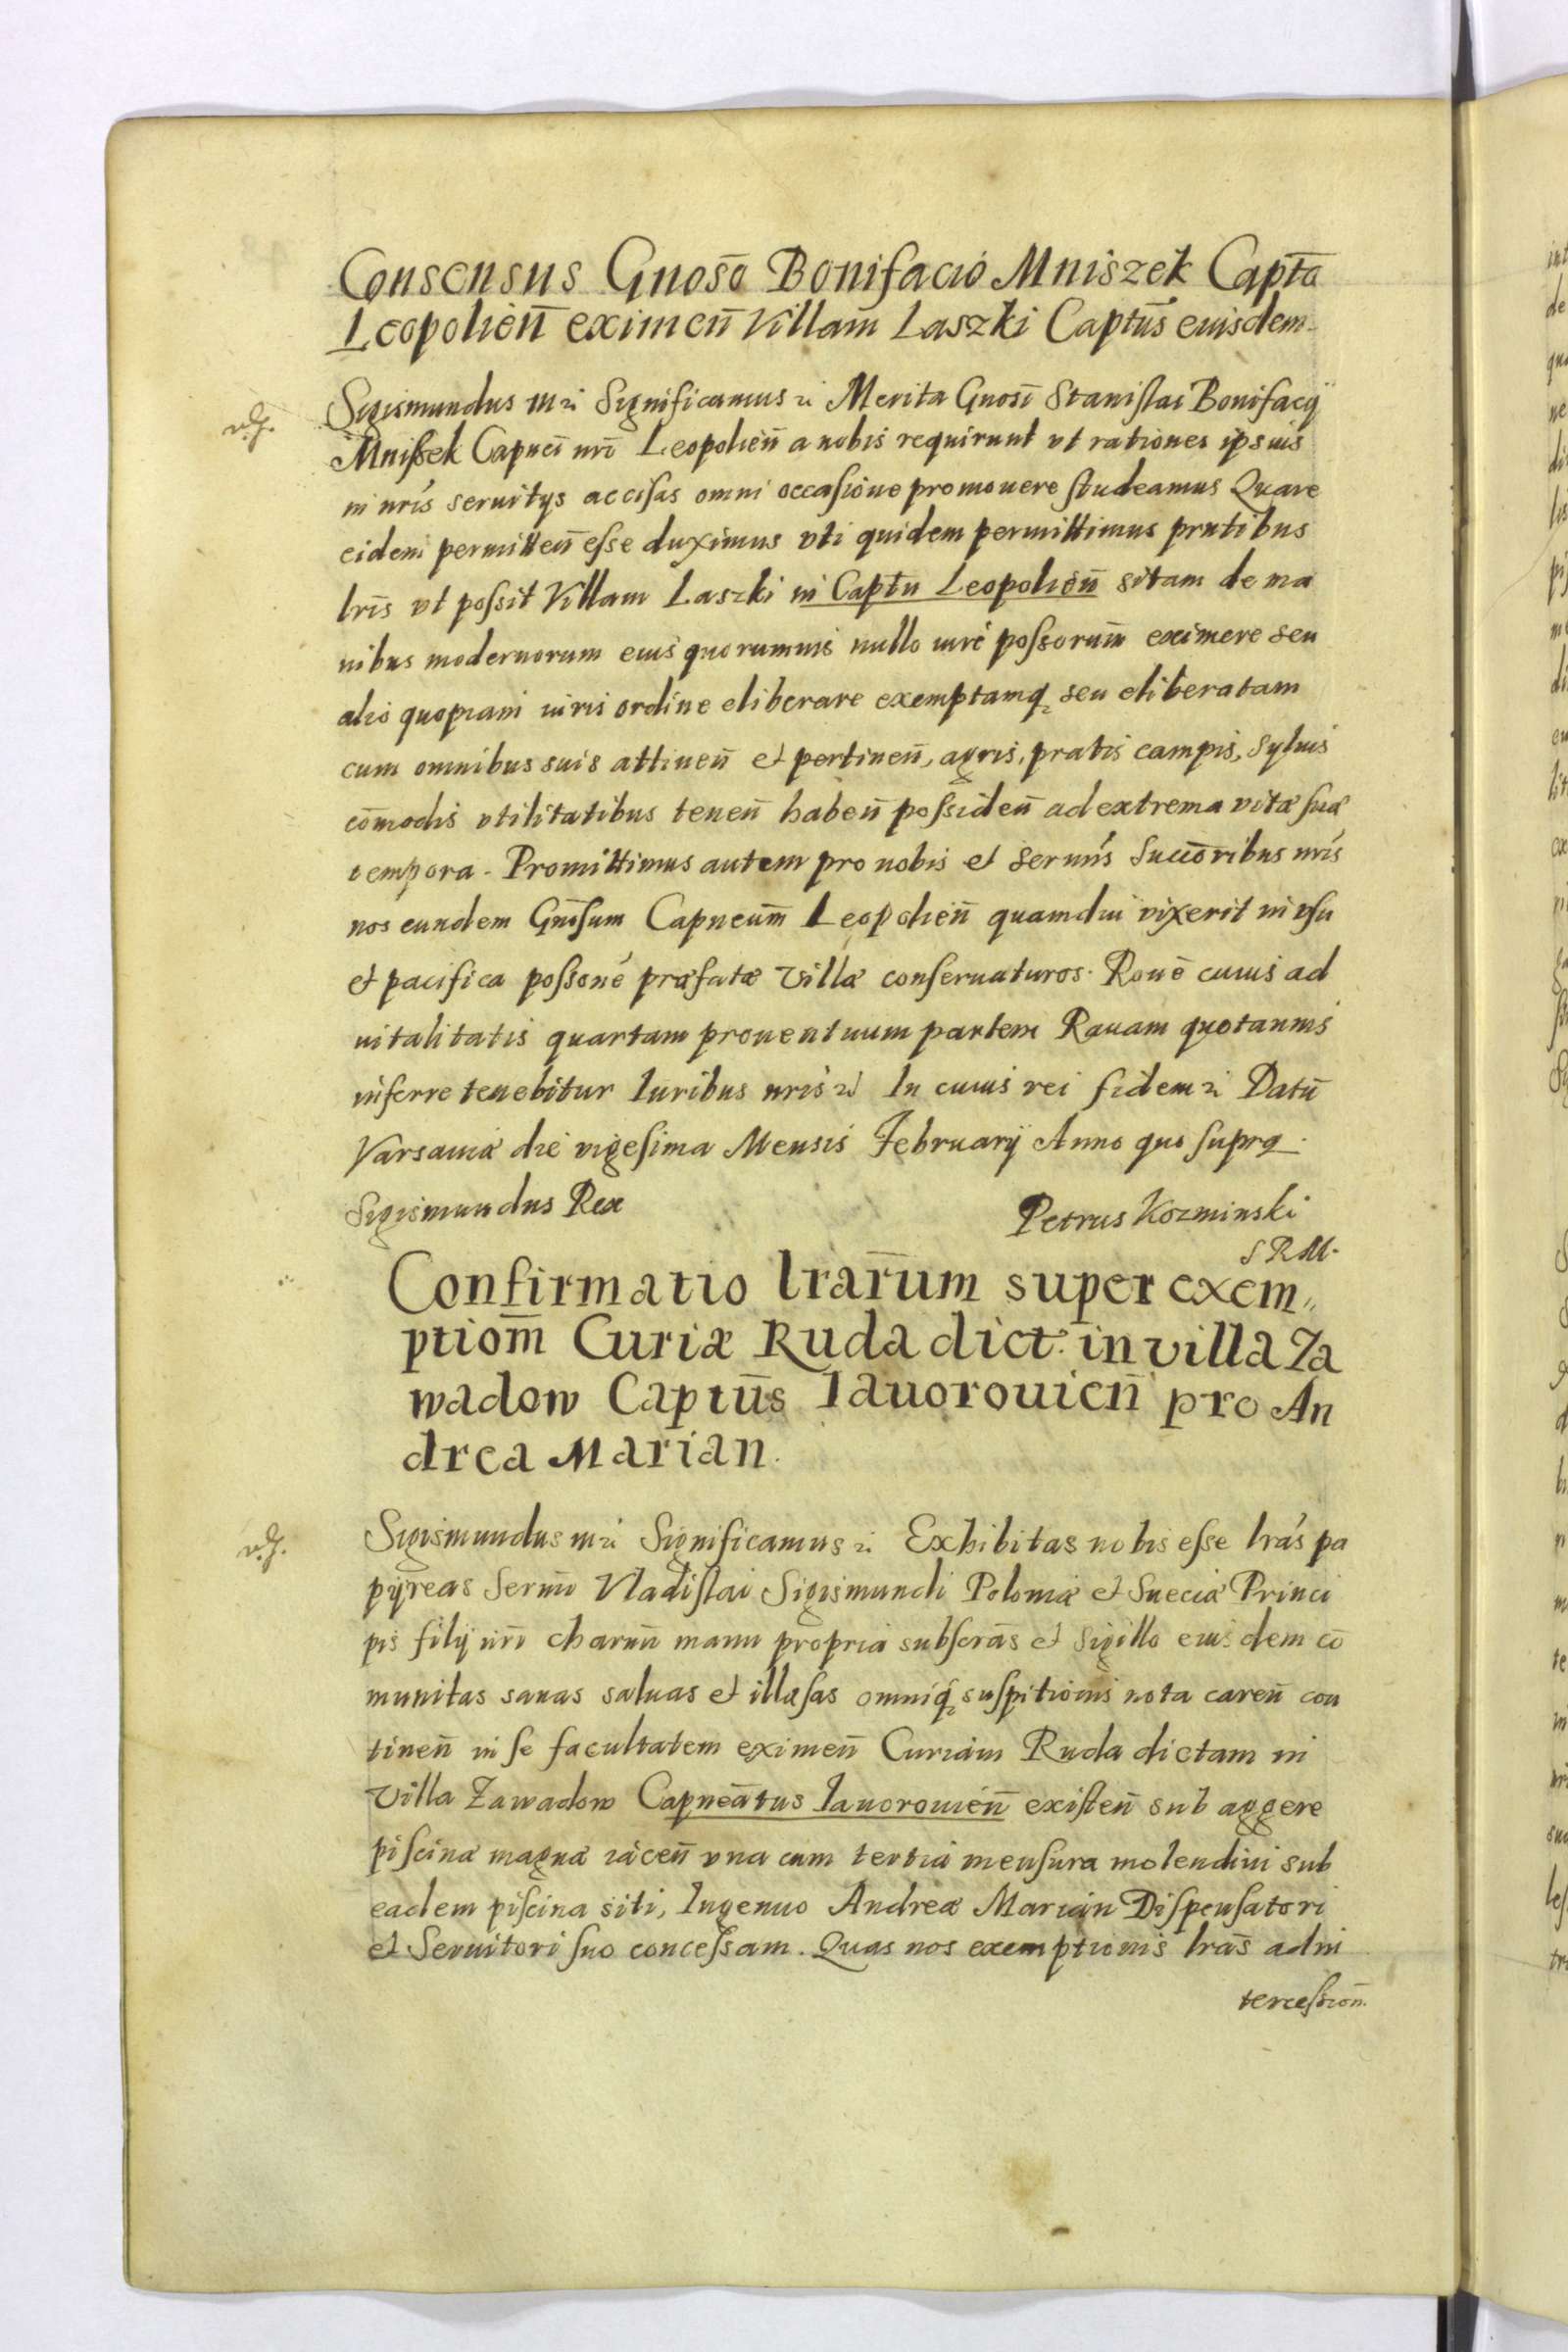 Consensus Gnosō Bonifacio Mniszek Capt̄o
Leopolien̄ eximen̄ Villam Laszki Captūs eiusdem
Sigismundus III Significamus Merita Gnosi Stanislai Bonifacij
Mnissek Capnei nr̄i Leopolien̄ a nobis requirunt vt rationes ipsius
in nris seruitys accisas omni occasione promouere studeamus Quare
eidem permitten̄ esse duximus vti quidem permittimus pr̄ntibus
lr̄is vt possit Villam Laszki in Captu Leopolien̄ sitam de ma
nibus modernorum eius quorumuis nullo iure possorum̄ eximere seu
alio quopiam iuris ordine eliberare exemptamq seu eliberatam
cum omnibus suis attinen̄ et pertinen̄, agris, pratis campis, syluis
cōmodis vtilitatibus tenen̄ haben̄ possiden̄ ad extrema vitæ suæ
tempora. Promittimus autem pro nobis et Sermis Succōribus nris
nos eundem Gnōsum Capneum̄ Leopolien̄ quamdiu vixerit in vsu
et pacifica possone præfatæ villæ conseruaturos. Rōne cuius ad
uitalitatis quartam prouentuum partem Rauam quotannis
inferre tenebitur Iuribus nris In cuius rei fidem Datū
Varsauiæ die vigesima Mensis February Anno quo supra.
Sigismundus Rex
Petrus Kozminski
S R M.
Confirmatio lrār̄um super exem„
ptiom̄ Curiæ Ruda dict: in villa Za
wadow Captūs Iauorouien̄ pro An
drea Marian.
Sigismundus III Significamus Exhibitas nobis esse lras pa
pyreas Sermi Vladislai Sigismundi Poloniæ et Sueciæ Princi
pis filij nr̄i charmi manu propria subscrās et Sigillo eiusdem cō
munitas sanas saluas et illæsas omniq suspitionis nota caren̄ con
tinen̄ in se facultatem eximen̄ Curiam Ruda dictam in
Villa Zawadow Capneātus Iauorouien̄ existen̄ sub aggere
piscinæ magnæ iacen̄ vna cum tertia mensura molendini sub
eadem piscina siti, Ingenuo Andreæ Marian Dispensatori
et Seruitori suo concessam. Quas nos exemptionis lrās ad in
tercession̄